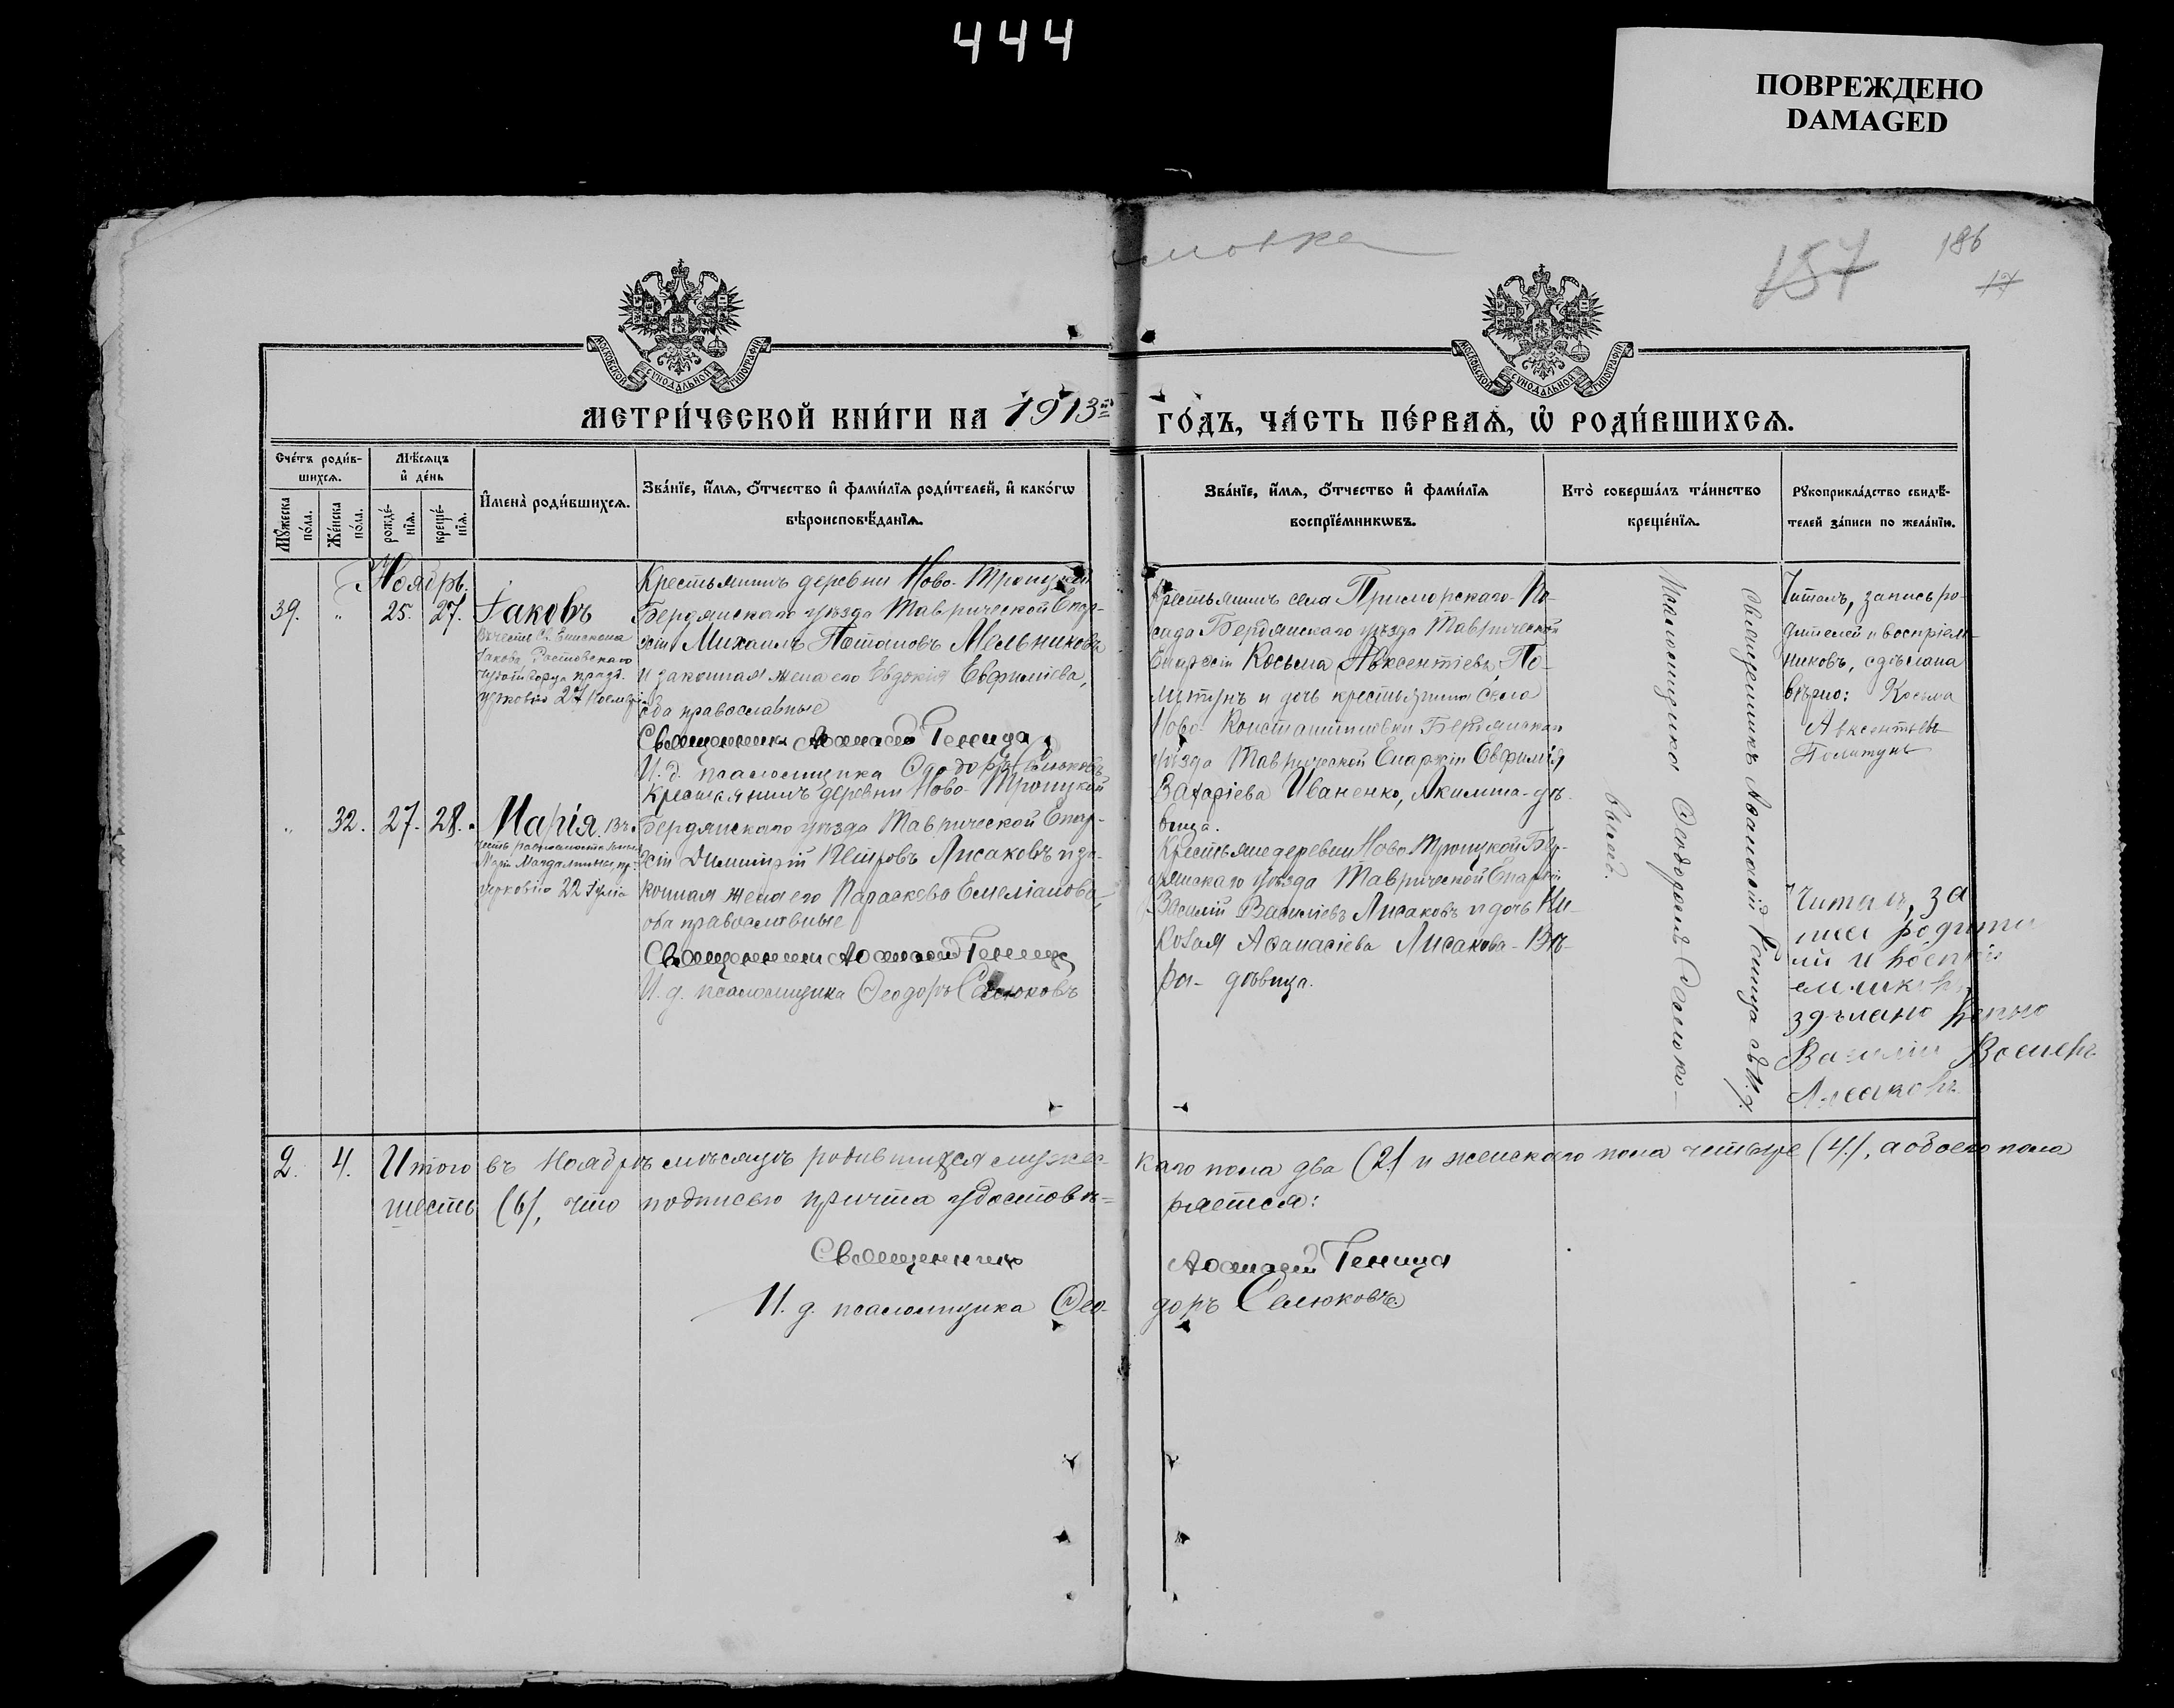 444
ПОВРЕЖДЕНО
DAMAGED
мовка
157
186
17
МОСКОВСКОЙ СѴНОДАЛЬНОЙ ТИПОГРАФІИ
МОСКОВСКОЙ СѴНОДАЛЬНОЙ ТИПОГРАФІИ
МЕТРИ́ЧЕСКОЙ КНИ́ГИ НА 1913й ГО́ДЪ, ЧА́СТЬ ПЕ́РВАѦ, Ѡ҆ РОДИ́ВШИХСѦ.
Сче́тъ роди́в-
шихсѧ.
Мꙋ́жеска по́ла.
Же́нска по́ла.
Мѣ́сѧцъ
и҆ де́нь
рожде́-
нїѧ.
креще́-
нїѧ.
И҆мена̀ роди́вшихсѧ.
Зва́нїе, и҆́мѧ, ѻ҆́тчество и҆ фами́лїѧ роди́телей, и҆ како́гѡ
вѣроисповѣ́данїѧ.
Зва́нїе, и҆́мѧ, ѻ҆́тчество и҆ фами́лїѧ
воспрїе́мникѡвъ.
Кто̀ соверша́лъ та́инство
креще́нїѧ.
Рꙋкоприкла́дство свидѣ́-
телей за́писи по жела́нїю.
Ноябрь.
39. „ 25. 27. Іаковъ
Въ честь Св. Епископа
Іакова Ростовскаго
чудотворца празд.
церковію 27 Ноемврія
Крестьянинъ деревни Ново-Троицкой
Бердянскаго уѣзда Таврической Епар-
хіи Михаилъ Потаповъ Мельниковъ
и законная жена его Евдокія Евфиміева,
оба православные
Священникъ Аѳанасій Геница
И. д. псаломщика Ѳеодоръ Селюковъ
Крестьянинъ села Приморскаго-По-
сада Бердянскаго уѣзда Таврической
Епархіи Косьма Авксентіевъ По-
литунъ и дочь крестьянина села
Ново-Константиновки Бердянскаго
уѣзда Таврической Епархіи Евфимія
Захаріева Иваненко, Акимина-дѣ-
вица.
Священникъ Аѳанасій Геница съ И. д.
Псаломщика Ѳеодоромъ Селюко-
вымъ.
Читалъ, запись ро-
дителей и воспріем-
никовъ, сдѣлана
вѣрно: Косьма
Авксентьевъ
Политунъ
„ 32. 27. 28. Марія. Въ
честь равноапостольныя
Маріи Магдалины, пр.
церковію 22 Іулія
Крестьянинъ деревни Ново-Троицкой
Бердянскаго уѣзда Таврической Епар-
хіи Димитрій Петровъ Лисаковъ и за-
конная жена его Параскева Емеліанова,
оба православные
Священникъ Аѳанасій Геница
И. д. псаломщика Ѳеодоръ Селюковъ
Крестьяне деревни Ново Троицкой Бер-
дянскаго уѣзда Таврической Епархіи
Василій Василіевъ Лисаковъ и дочь Ни-
колая Аѳанасіева Лисакова-Вѣ-
ра-дѣвица.
Читалъ, за
родите
ли и воспрі
емников
здѣлано верно
Василій Василевъ
Лисаковъ
2. 4. Итого въ Ноябрѣ мѣсяцѣ родившихся мужес-каго пола два (2) и женскаго пола четыре (4), а обоего пола
шесть (6), что подписью причта удостовѣ-ряется:
Священникъ Аѳанасій Геница
И. д. псаломщика Ѳео-доръ Селюковъ